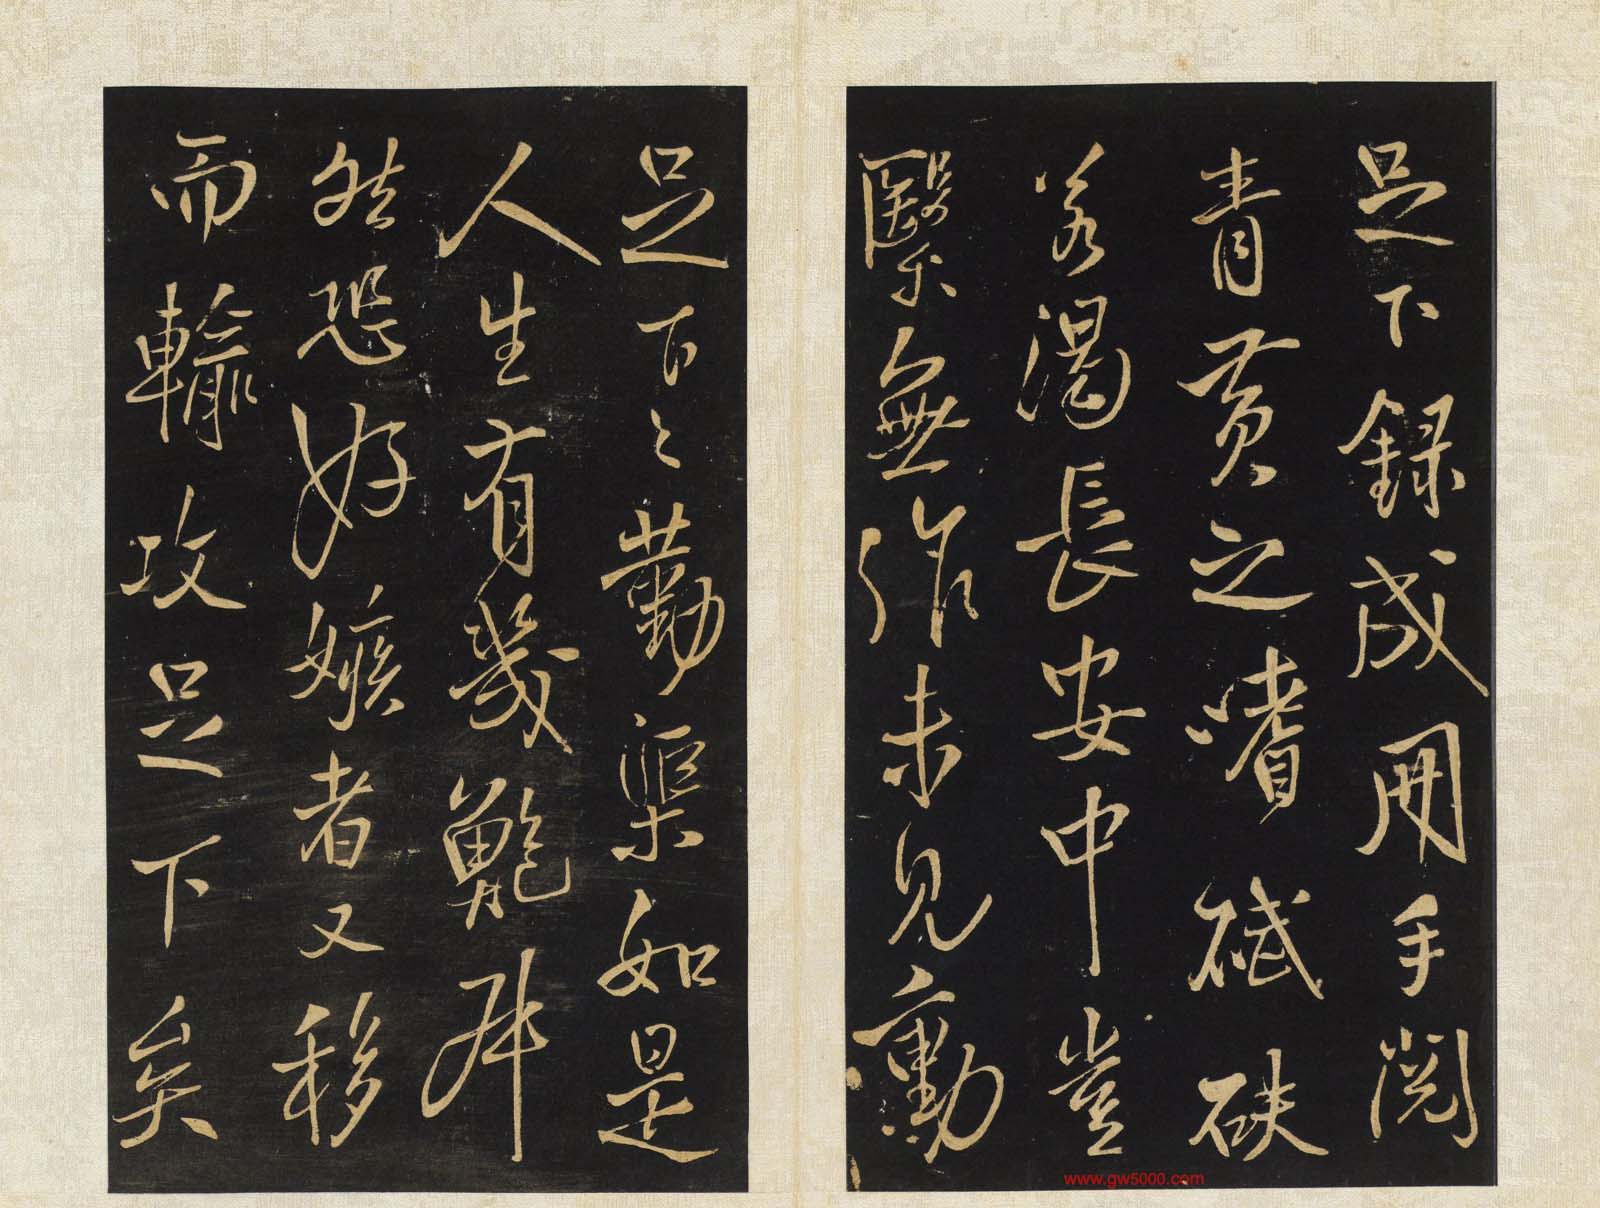 足下錄成冊手閱
青黃之嗜碔砆
若渴長安中豈
繄無作未見
足下之勤渠如是
人生有幾鮑叔
然恐好嫉者又移
而輸攻足下矣
www.gw5000.com